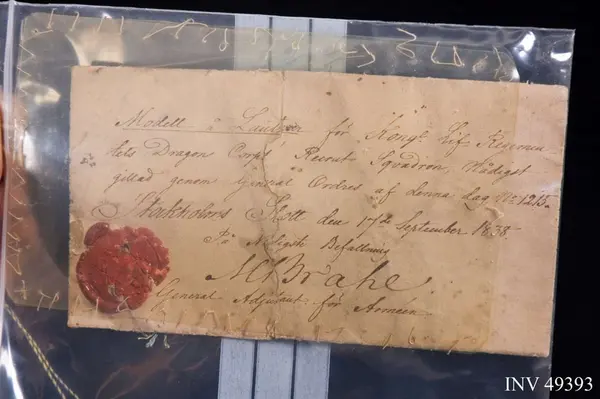 Modell å för Kongl. Lif Regemen-
tets Dragon Corps Recrut Squadron, Nådigst
gillad genom General Ordres af denna dag No 1215.
Stockholms Slott den 17de September 1838.
På Nådigste Befallning
M Brahe
General Adjutant för Arméen
INV 49393